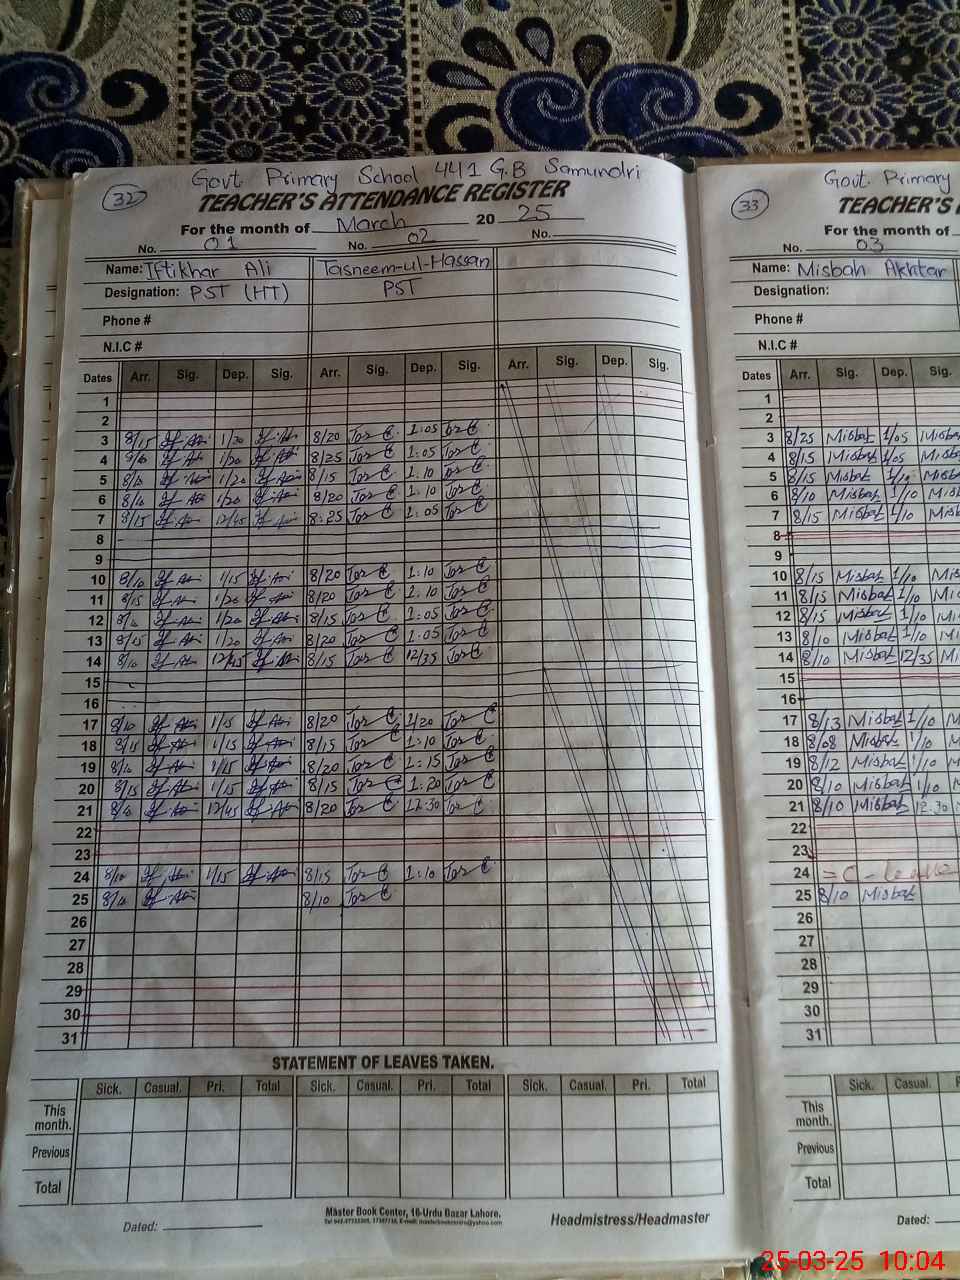 32
Govt. Primary School 441 G.B Samundri
TEACHER'S ATTENDANCE REGISTER
For the month of March 2025
No. 01 No. 02 No.
Name: Iftikhar Ali Tasneem-ul-Hassan
Designation: PST (HT) PST
Phone #
N.I.C #
Dates Arr. Sig. Dep. Sig. Arr. Sig. Dep. Sig. Arr. Sig. Dep. Sig.
1
2
3 8/15 1/20 8/20 1:05
4 1/20 8/25 1:05
5 8/10 1/20 8/15 1:10
6 8/10 1/20 8/20 1:10
7 8/15 12/45 8:25 1:05
8
9
10 8/10 1/15 8/20 1:10
11 8/15 1/20 8/20 1:10
12 8/10 1/20 8/15 1:05
13 8/15 1/20 8/20 1:05
14 8/10 12/45 8/15 12/35
15
16
17 8/10 1/15 8/20 1/20
18 8/15 1/15 8/15 1:10
19 8/10 1/15 8/20 1:15
20 8/15 1/15 8/15 1:20
21 8/10 12/45 8/20 12:30
22
23
24 8/10 1/15 8/15 1:10
25 8/10 8/10
26
27
28
29
30
31
STATEMENT OF LEAVES TAKEN.
Sick. Casual. Pri. Total Sick. Casual. Pri. Total Sick. Casual. Pri. Total
This month.
Previous
Total
Master Book Center, 16-Urdu Bazar Lahore.
Dated: Headmistress/Headmaster
33
Govt. Primary
TEACHER'S
For the month of
No. 03
Name: Misbah Akhtar
Designation:
Phone #
N.I.C #
Dates Arr. Sig. Dep. Sig.
1
2
3 8/25 Misbah 1/05 Misbah
4 8/15 Misbah 1/05 Misba
5 8/15 Misbah 1/10 Misba
6 8/10 Misbah 1/10 Misb
7 8/15 Misbah 1/10 Misb
8
9
10 8/15 Misbah 1/10 Mis
11 8/15 Misbah 1/10 Mis
12 8/15 Misbah 1/10 Mis
13 8/10 Misbah 1/10 Mi
14 8/10 Misbah 12/35 Mi
15
16
17 8/13 Misbah 1/10 M
18 8/08 Misbah 1/10 M
19 8/12 Misbah 1/10 M
20 8/10 Misbah 1/10 M
21 8/10 Misbah 12:30
22
23
24 = C - leave
25 8/10 Misbah
26
27
28
29
30
31
Sick. Casual. P
This month.
Previous
Total
Dated:
25-03-25 10:04